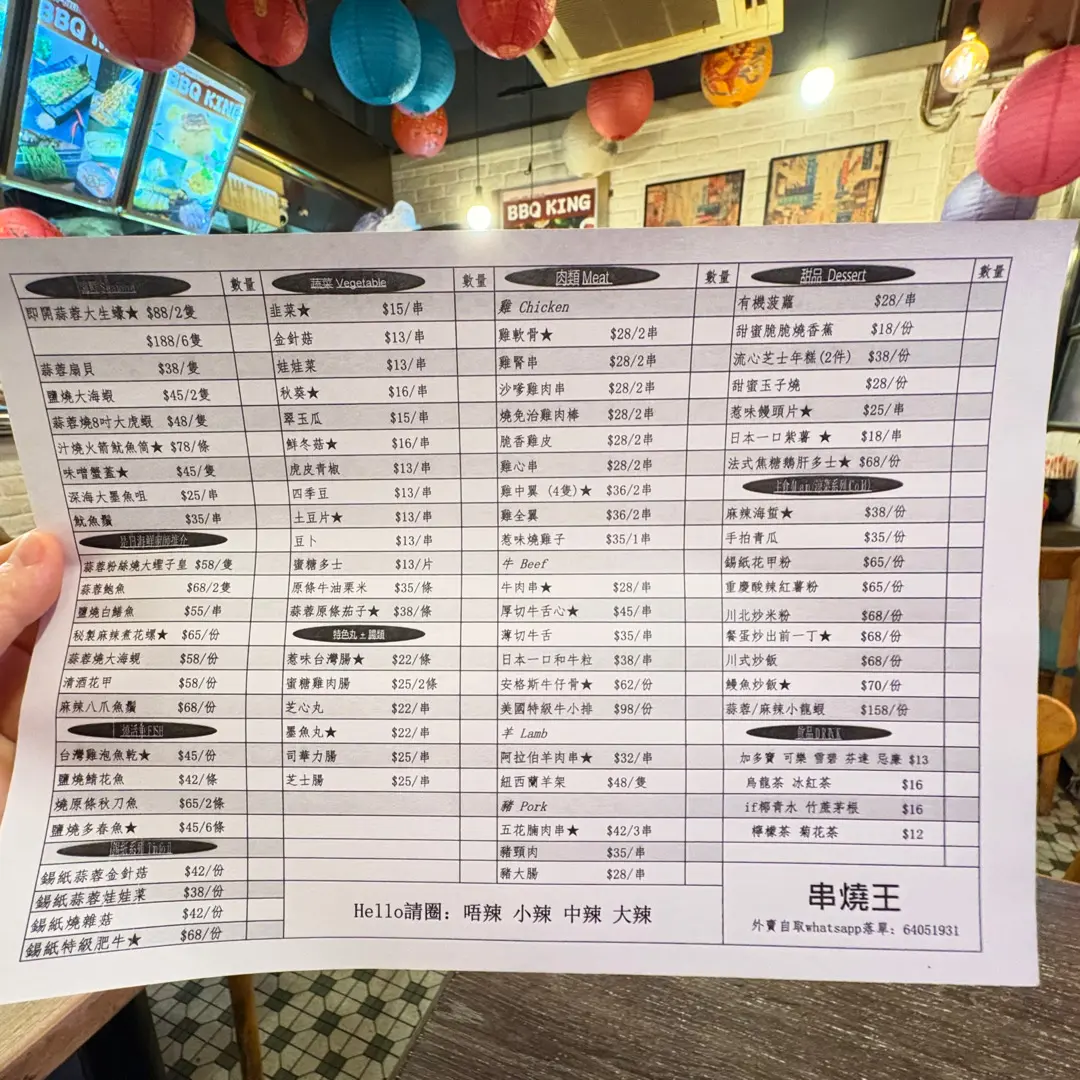 BBQ KING
BBQ KING
BBQ KING
數量
即開蒜蓉大生蠔★ $88/2隻
$188/6隻
蒜蓉扇貝 $38/隻
鹽燒大海蝦 $45/2隻
蒜蓉燒8吋大虎蝦 $48/隻
汁燒火箭魷魚筒★ $78/條
味噌蟹蓋★ $45/隻
深海大墨魚咀 $25/串
魷魚鬚 $35/串
是日海鮮廚師推介
蒜蓉粉絲燒大蟶子皇 $58/隻
蒜蓉鮑魚 $68/2隻
鹽燒白鱔魚 $55/串
秘製麻辣煮花螺★ $65/份
蒜蓉燒大海蜆 $58/份
清酒花甲 $58/份
麻辣八爪魚鬚 $68/份
燒活魚FISH
台灣雞泡魚乾★ $45/份
鹽燒鯖花魚 $42/條
燒原條秋刀魚 $65/2條
鹽燒多春魚★ $45/6條
錫紙系列
錫紙蒜蓉金針菇 $42/份
錫紙蒜蓉娃娃菜 $38/份
錫紙燒雜菇 $42/份
錫紙特級肥牛★ $68/份
蔬菜 Vegetable 數量
韭菜★ $15/串
金針菇 $13/串
娃娃菜 $13/串
秋葵★ $16/串
翠玉瓜 $15/串
鮮冬菇★ $16/串
虎皮青椒 $13/串
四季豆 $13/串
土豆片★ $13/串
豆卜 $13/串
蜜糖多士 $13/片
原條牛油粟米 $35/條
蒜蓉原條茄子★ $38/條
特色丸
惹味台灣腸★ $22/條
蜜糖雞肉腸 $25/2條
芝心丸 $22/串
墨魚丸★ $22/串
司華力腸 $25/串
芝士腸 $25/串
肉類 Meat 數量
雞 Chicken
雞軟骨★ $28/2串
雞腎串 $28/2串
沙嗲雞肉串 $28/2串
燒免治雞肉棒 $28/2串
脆香雞皮 $28/2串
雞心串 $28/2串
雞中翼 (4隻)★ $36/2串
雞全翼 $36/2串
惹味燒雞子 $35/1串
牛 Beef
牛肉串★ $28/串
厚切牛舌心★ $45/串
薄切牛舌 $35/串
日本一口和牛粒 $38/串
安格斯牛仔骨★ $62/份
美國特級牛小排 $98/份
羊 Lamb
阿拉伯羊肉串★ $32/串
紐西蘭羊架 $48/隻
豬 Pork
五花腩肉串★ $42/3串
豬頸肉 $35/串
豬大腸 $28/串
甜品 Dessert 數量
有機菠蘿 $28/串
甜蜜脆脆燒香蕉 $18/份
流心芝士年糕(2件) $38/份
甜蜜玉子燒 $28/份
惹味饅頭片★ $25/串
日本一口紫薯 ★ $18/串
法式焦糖鵝肝多士★ $68/份
麻辣海蜇★ $38/份
手拍青瓜 $35/份
錫紙花甲粉 $65/份
重慶酸辣紅薯粉 $65/份
川北炒米粉 $68/份
餐蛋炒出前一丁★ $68/份
川式炒飯 $68/份
鰻魚炒飯★ $70/份
蒜蓉/麻辣小龍蝦 $158/份
飲品 DRINK
加多寶 可樂 雪碧 芬達 忌廉 $13
烏龍茶 冰紅茶 $16
if椰青水 竹蔗茅根 $16
檸檬茶 菊花茶 $12
Hello請圈：唔辣 小辣 中辣 大辣
串燒王
外賣自取whatsapp落單：64051931